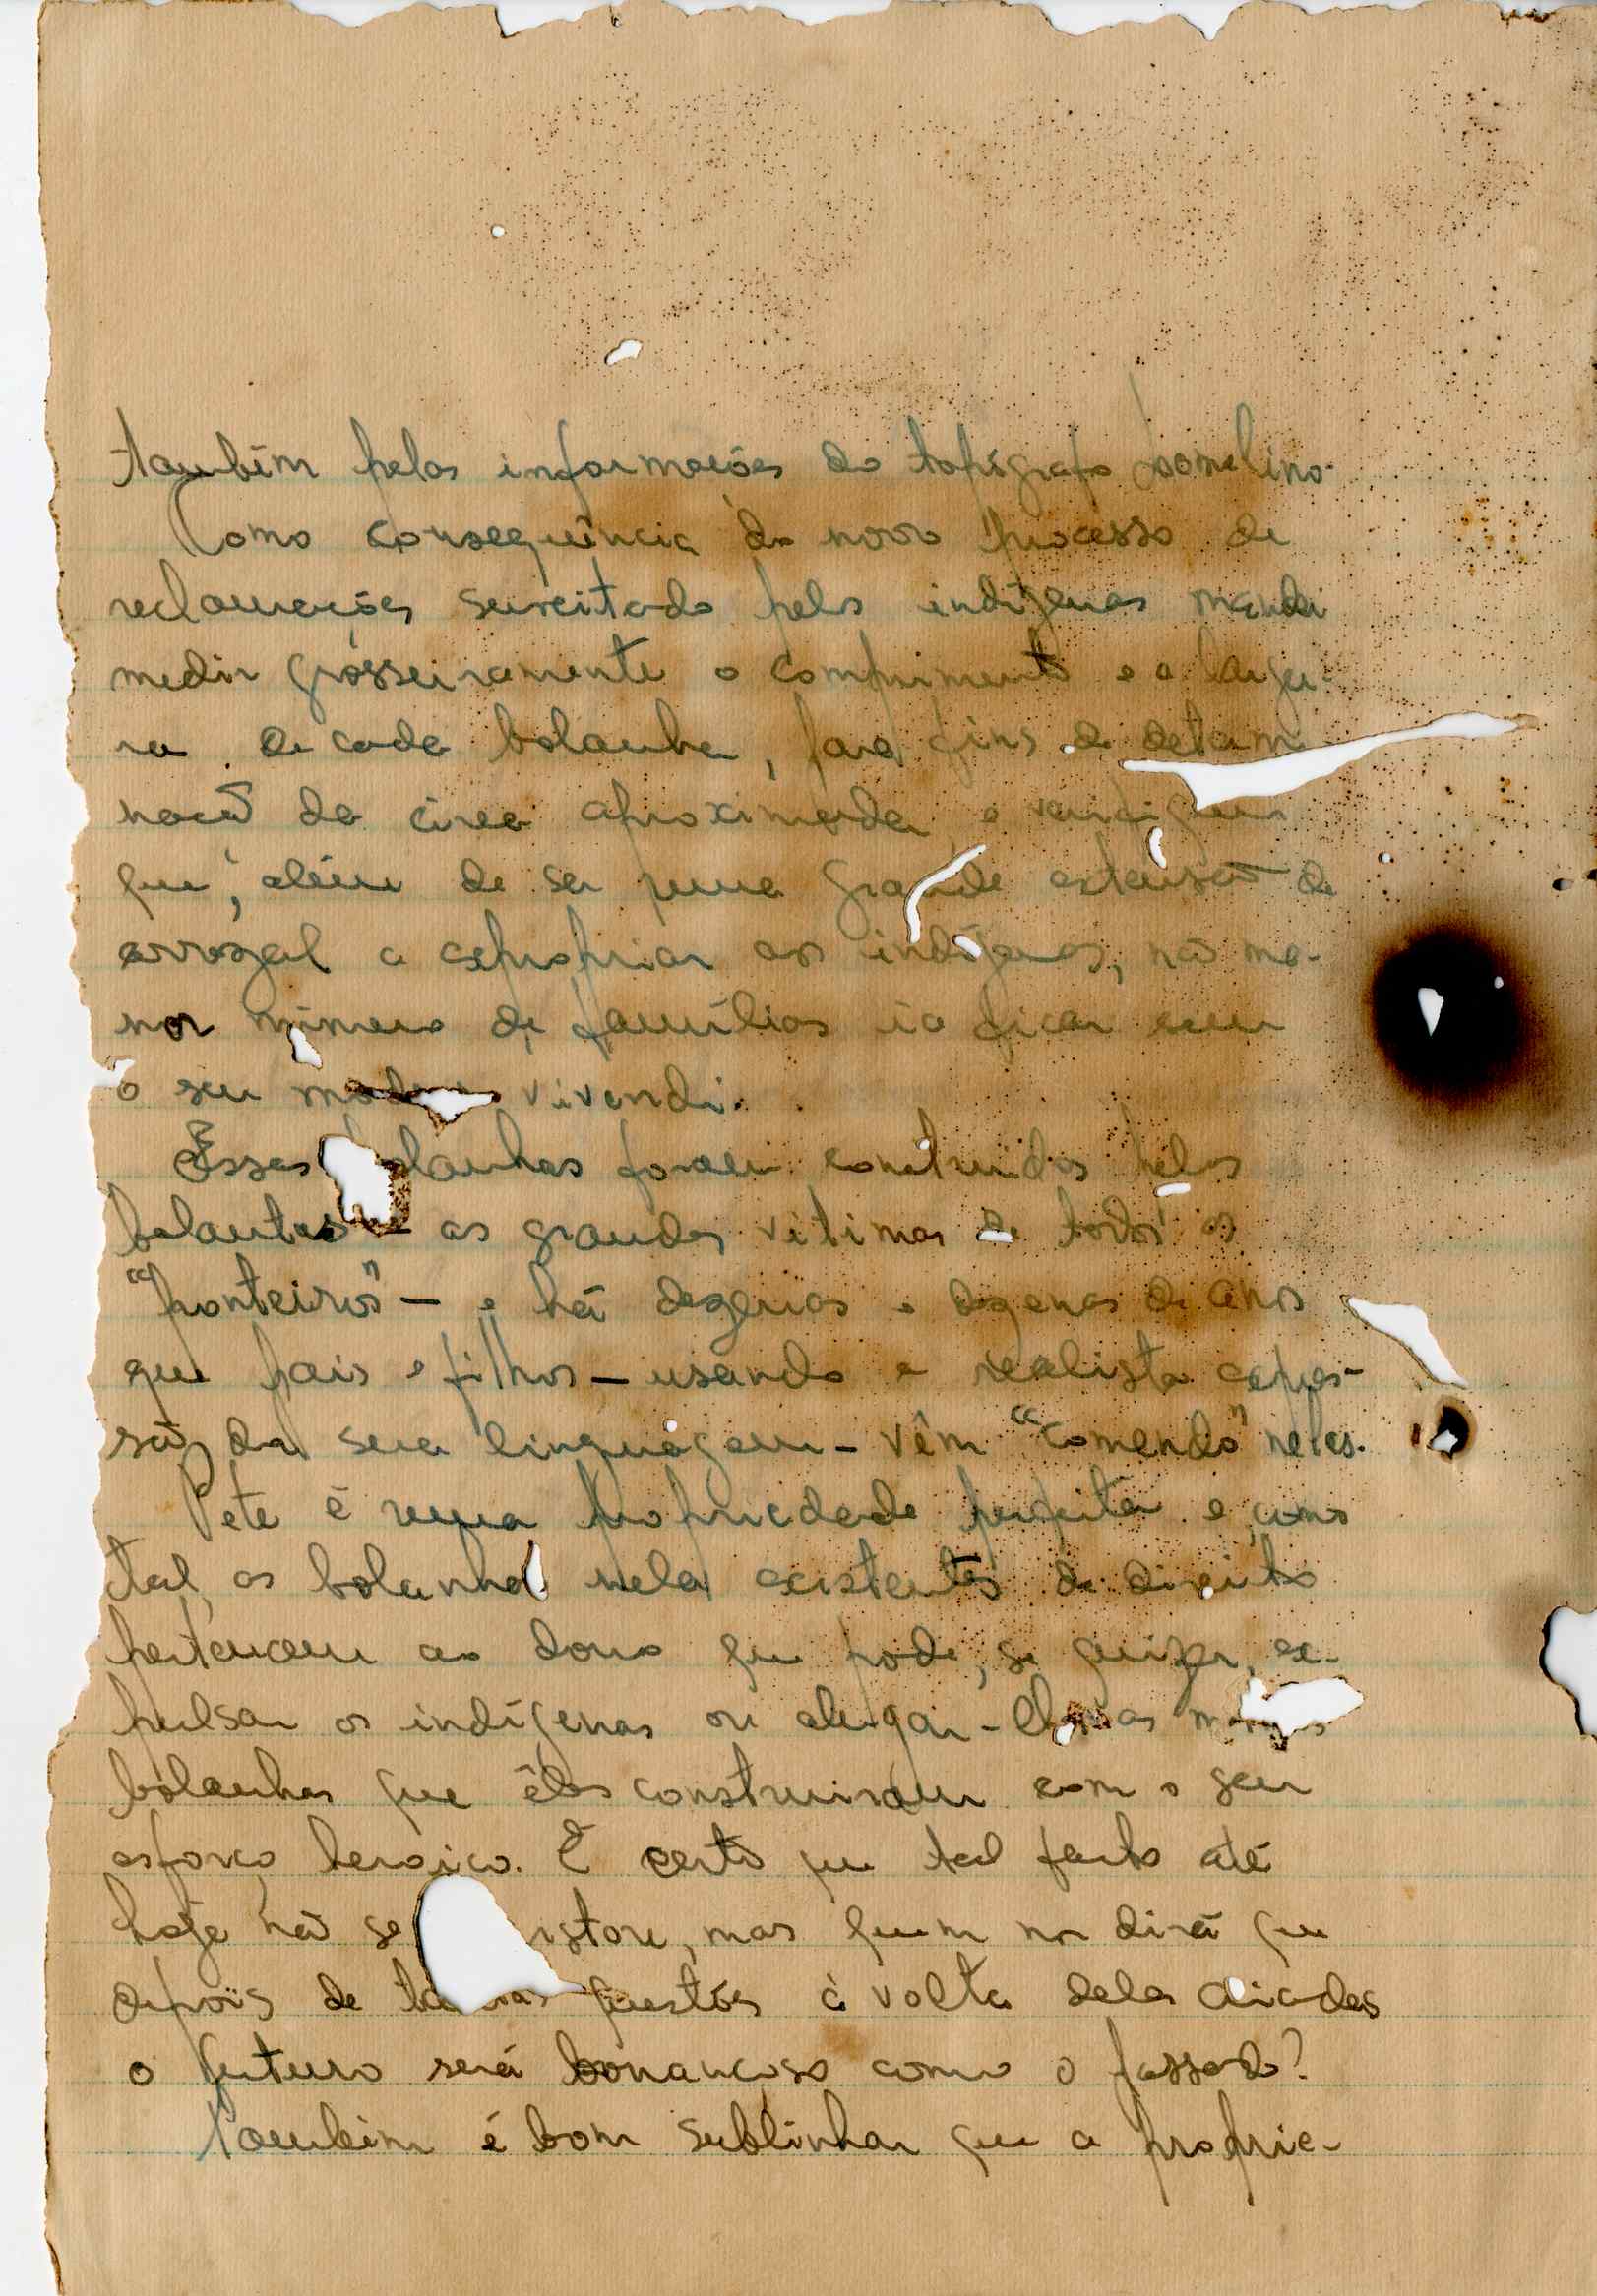 também pelas informações do topógrafo
Como consequência do novo processo de
reclamações suscitado pelos indígenas mandei
medir grosseiramente o comprimento e a largu-
ra de cada bolanha, para fins de determi
nação da área aproximada, e verifiquei
que, além de ser uma grande extensão de
arrozal a expropriar aos indígenas, não me-
nor número de famílias ia ficar sem
o seu modus vivendi.
Essas bolanhas foram construidas pelos
balantas — as grandes vítimas de todos os
"ponteiros" — e há dezenas e dezenas de anos
que pais e filhos — usando a realista expres-
são da sua linguagem — vêm "comendo" nelas.
Pete é uma propriedade perfeita e, como
tal, as bolanhas nela existentes de direito
pertencem ao dono que pode, se quizer, ex-
pulsar os indígenas ou alugar-lhes as
bolanhas que êles construiram com o seu
esforço heroico. É certo que tal facto até
hoje não se mas quem nos dirá que
depois de tantas questões à volta delas criadas
o futuro será bonançoso como o passado?
Também é bom sublinhar que a proprie-